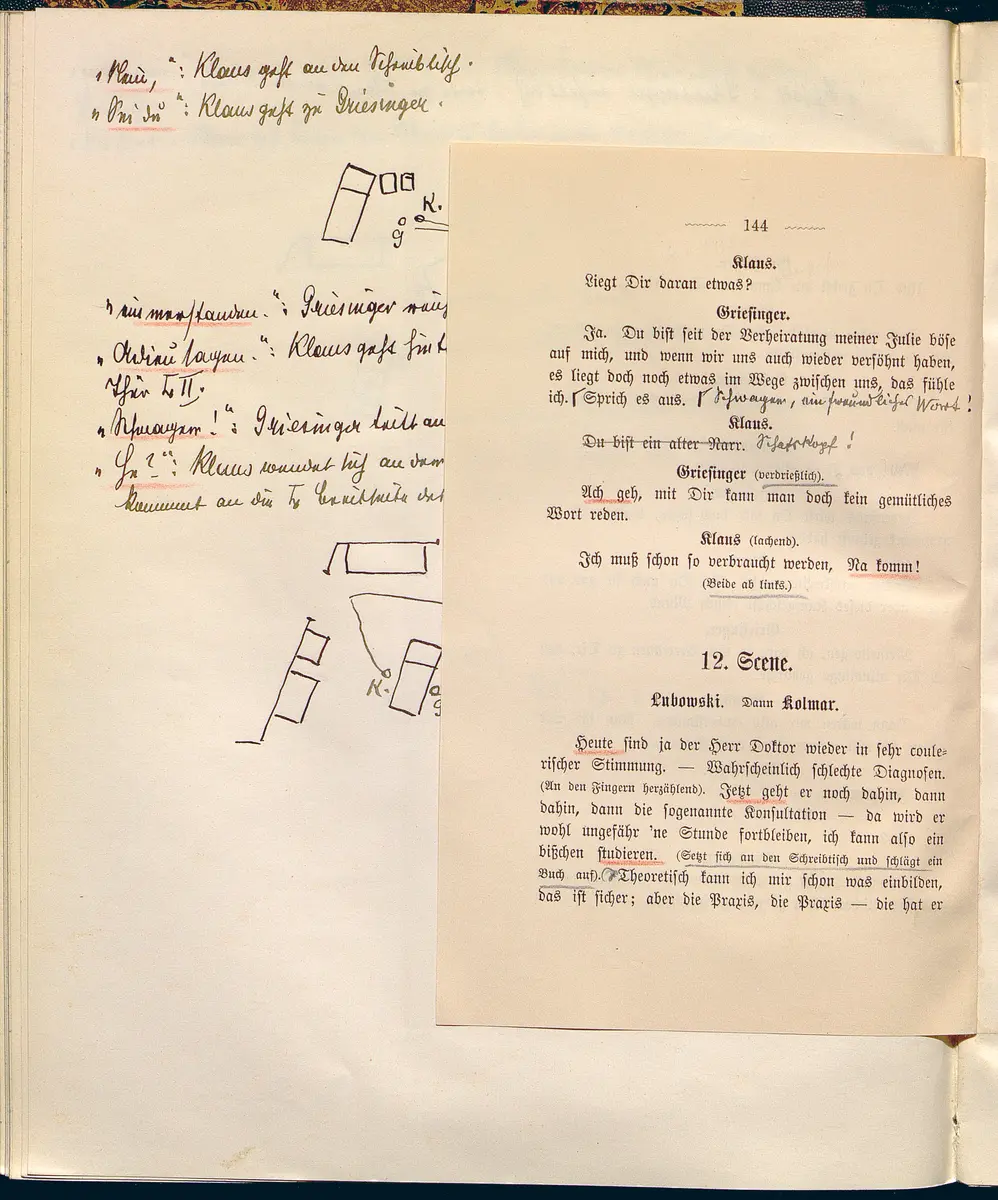 „Nein,“: Klaus geht an den Schreibtisch.
„Sei du“: Klaus geht zu Griesinger.
K.
g
„einverstanden.“: Griesinger
„Adieu sagen.“: Klaus geht
Thür L II.
„Schwager!“: Griesinger tritt an
„He?“: Klaus wendet sich an
kommt an die L Breitseite des
K.
g
144
Klaus.
Liegt Dir daran etwas?
Griesinger.
Ja. Du bist seit der Verheiratung meiner Julie böse
auf mich, und wenn wir uns auch wieder versöhnt haben,
es liegt doch noch etwas im Wege zwischen uns, das fühle
ich. Sprich es aus. Schwager, ein freundliches Wort!
Klaus.
Du bist ein alter Narr. Schafskopf!
Griesinger (verdrießlich).
Ach geh, mit Dir kann man doch kein gemütliches
Wort reden.
Klaus (lachend).
Ich muß schon so verbraucht werden, Na komm!
(Beide ab links.)
12. Scene.
Lubowski. Dann Kolmar.
Heute sind ja der Herr Doktor wieder in sehr coule-
rischer Stimmung. — Wahrscheinlich schlechte Diagnosen.
(An den Fingern herzählend). Jetzt geht er noch dahin, dann
dahin, dann die sogenannte Konsultation — da wird er
wohl ungefähr 'ne Stunde fortbleiben, ich kann also ein
bißchen studieren. (Setzt sich an den Schreibtisch und schlägt ein
Buch auf). Theoretisch kann ich mir schon was einbilden,
das ist sicher; aber die Praxis, die Praxis — die hat er